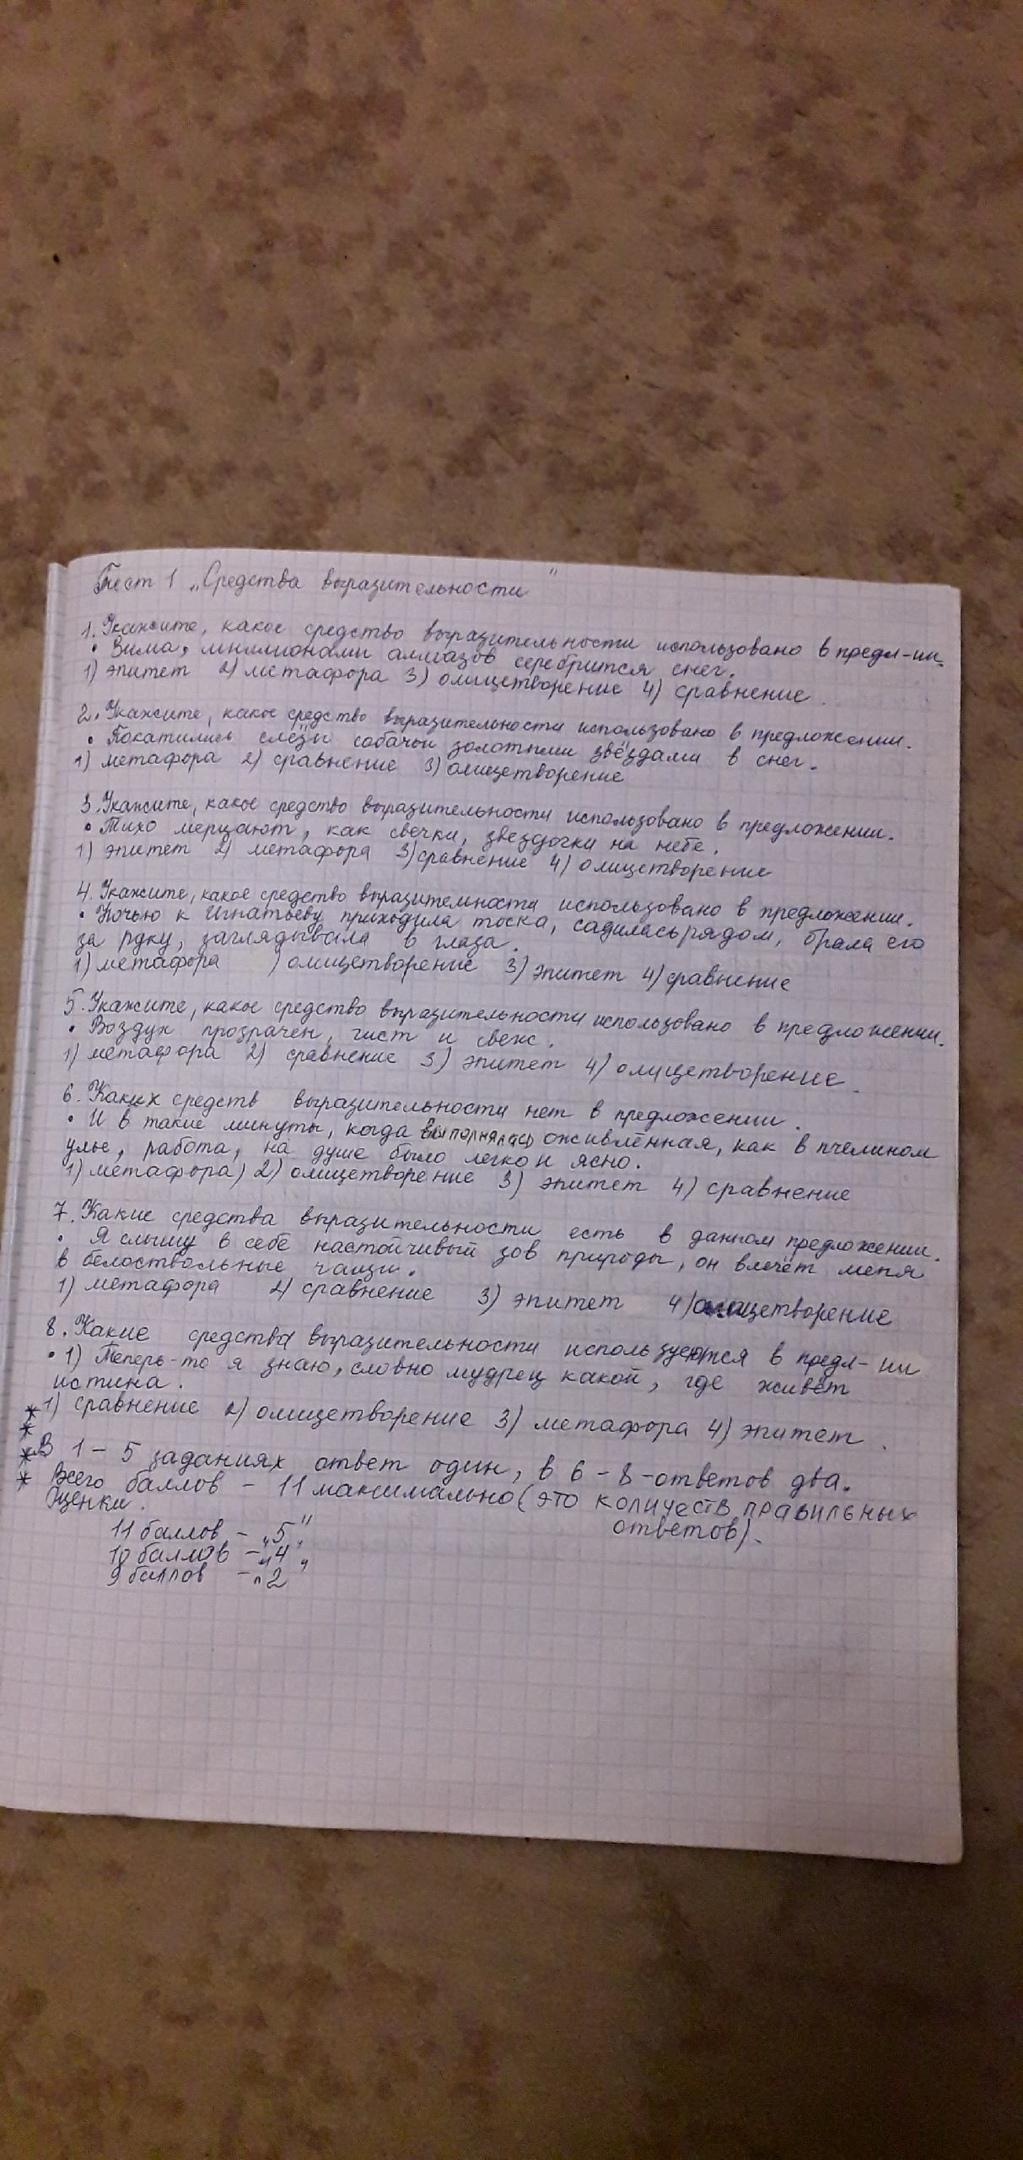 Тест 1 „Средства выразительности"
1. Укажите, какое средство выразительности использовано в предл-ии.
• Зима, миллионами алмазов серебрится снег.
1) эпитет 2) метафора 3) олицетворение 4) сравнение
2. Укажите, какое средство выразительности использовано в предложении.
• Покатились слёзы собачьи золотыми звёздами в снег.
1) метафора 2) сравнение 3) олицетворение
3. Укажите, какое средство выразительности использовано в предложении.
• Тихо мерцают, как свечки, звездочки на небе.
1) эпитет 2) метафора 3) сравнение 4) олицетворение
4. Укажите, какое средство выразительности использовано в предложении.
• Ночью к Игнатьеву приходила тоска, садилась рядом, брала его
за руку, заглядывала в глаза.
1) метафора ) олицетворение 3) эпитет 4) сравнение
5. Укажите, какое средство выразительности использовано в предложении.
• Воздух прозрачен, чист и свеж.
1) метафора 2) сравнение 3) эпитет 4) олицетворение.
6. Каких средств выразительности нет в предложении.
• И в такие минуты, когда выполнялась оживлённая, как в пчелином
улье, работа, на душе было легко и ясно.
1) метафора) 2) олицетворение 3) эпитет 4) сравнение
7. Какие средства выразительности есть в данном предложении.
• Я слышу в себе настойчивый зов природы, он влечёт меня
в белоствольные чащи.
1) метафора 2) сравнение 3) эпитет 4) олицетворение
8. Какие средства выразительности используются в предл-ии
• 1) Теперь-то я знаю, словно мудрец какой, где живёт
истина.
* 1) сравнение 2) олицетворение 3) метафора 4) эпитет.
*
* В 1 – 5 заданиях ответ один, в 6 – 8 – ответов два.
* Всего баллов – 11 максимально (это количеств правильных
ответов).
Оценки.
11 баллов – „5"
10 баллов – „4"
9 баллов – „2"